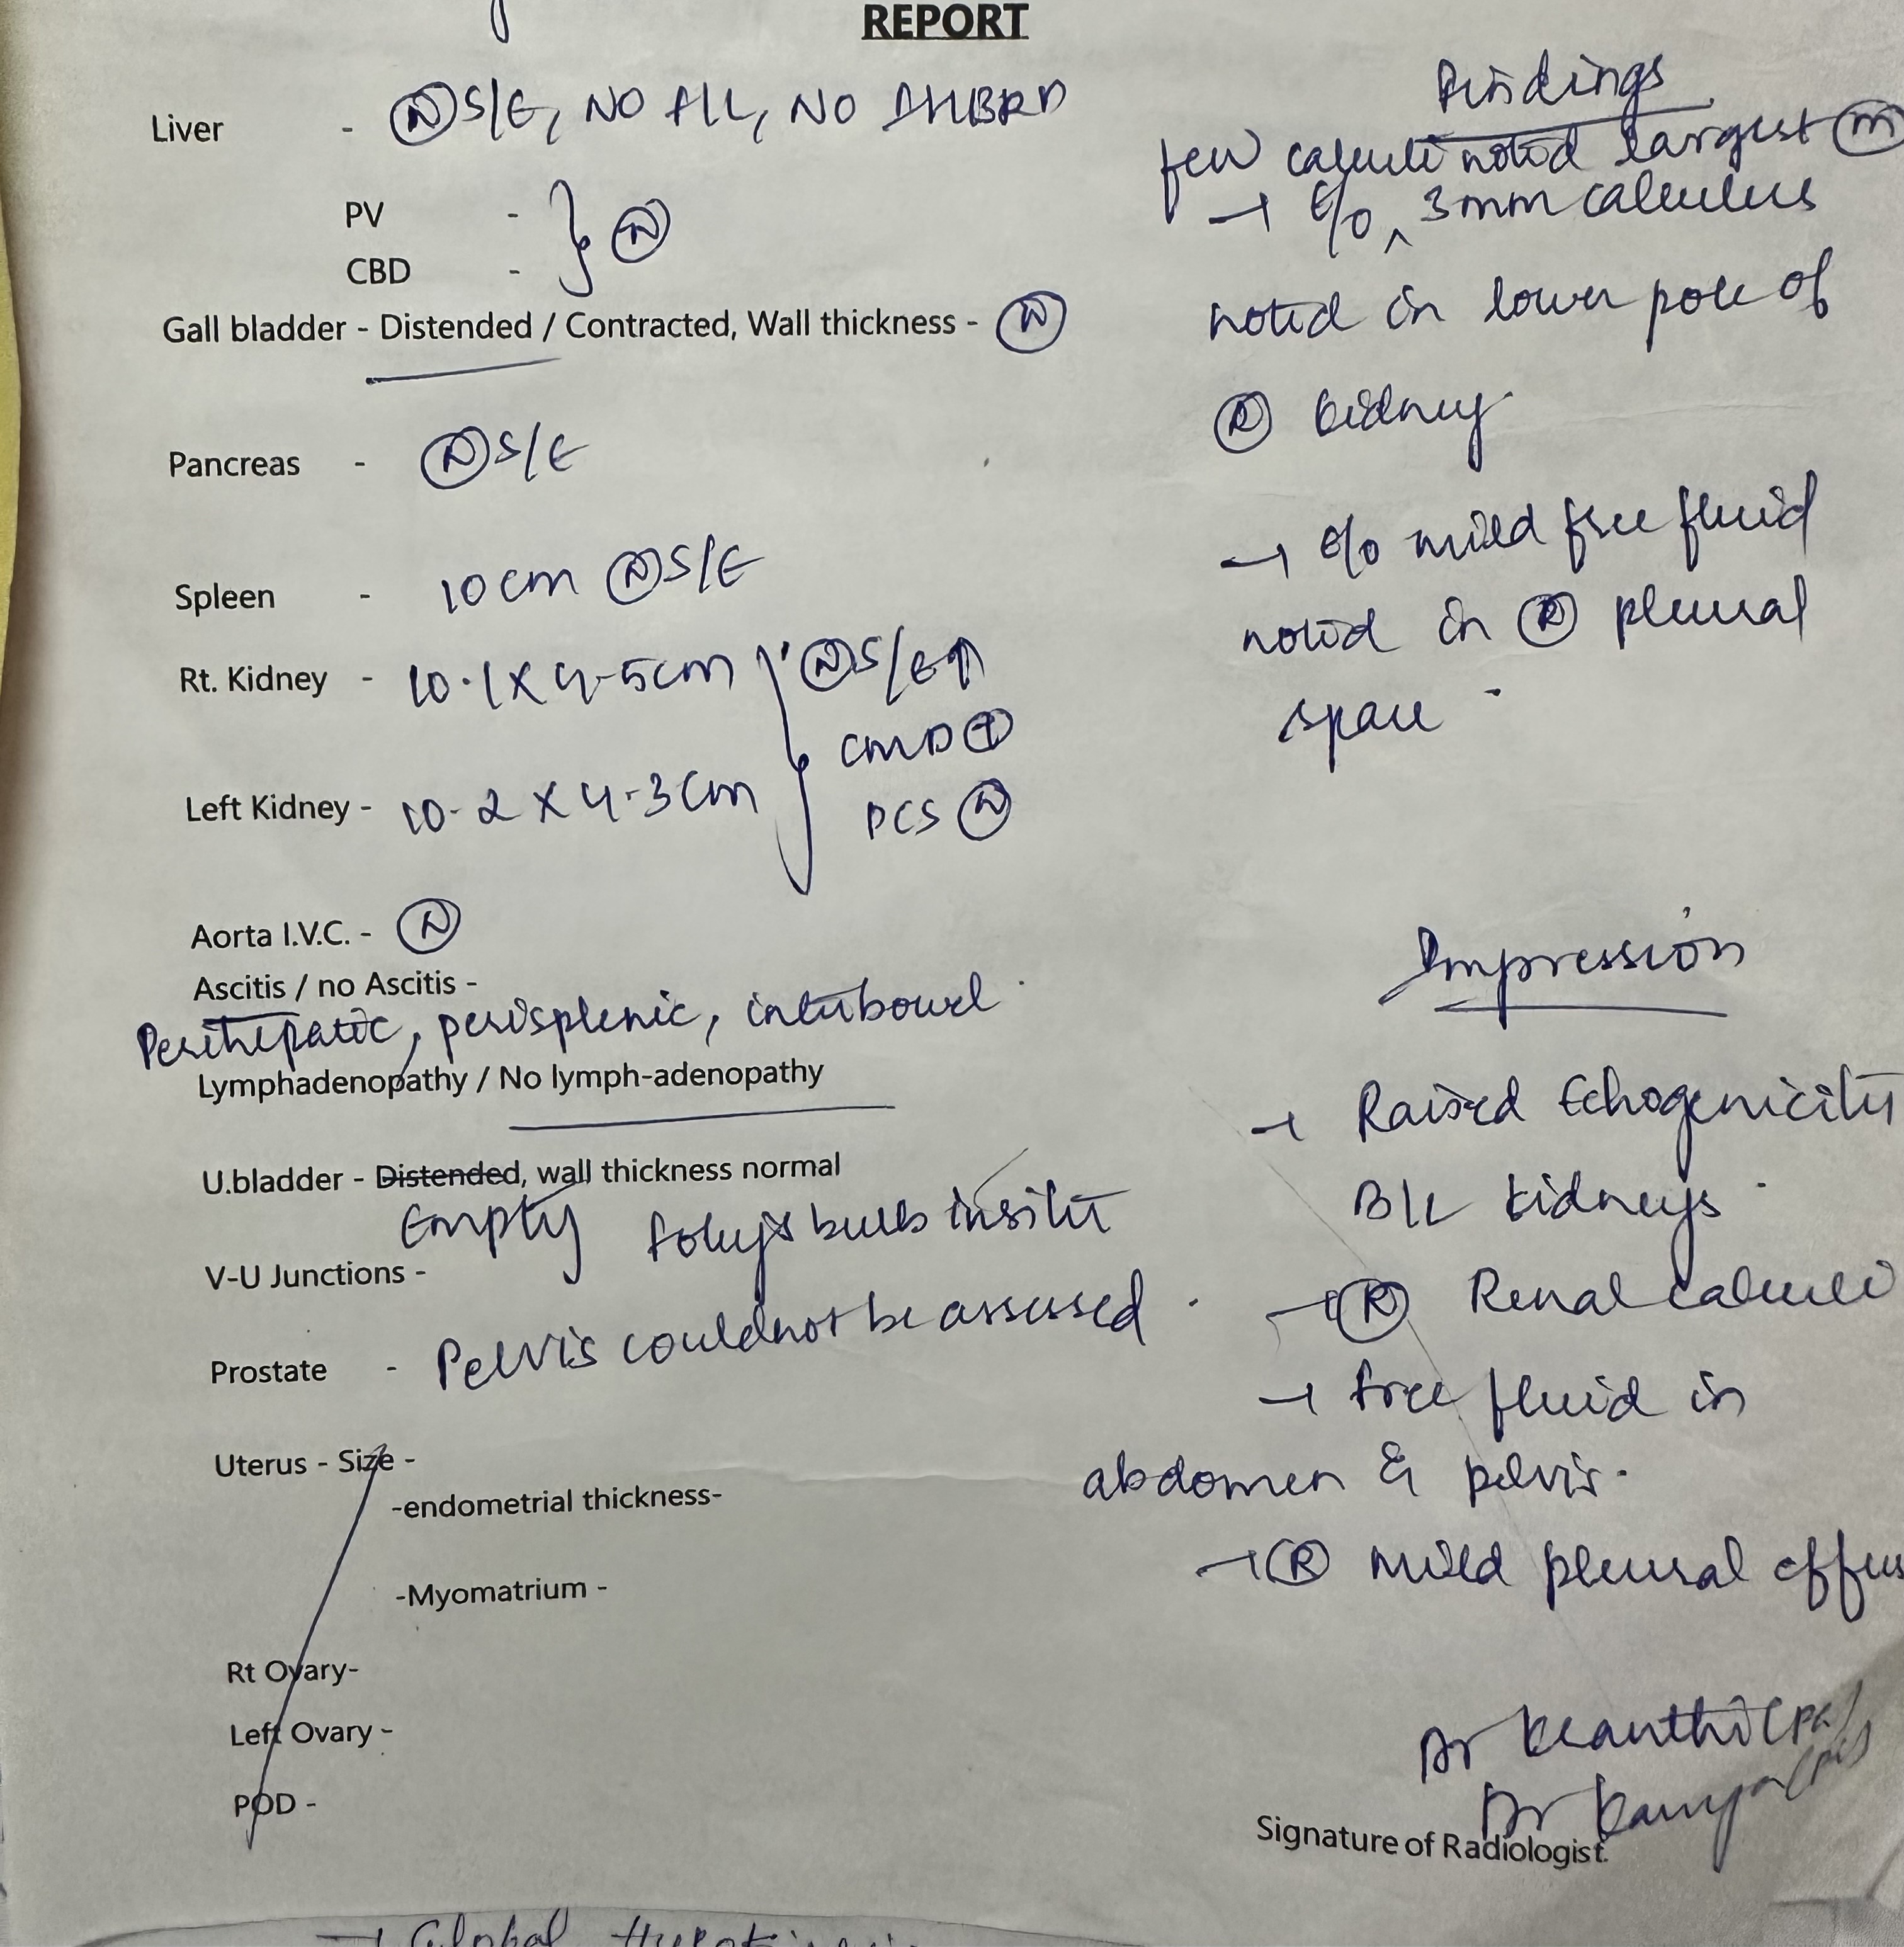 REPORT
Liver - (N) S/E, NO FLL, NO IHBRD
PV -
CBD - } (N)
Gall bladder - Distended / Contracted, Wall thickness - (N)
Pancreas - (N) S/E
Spleen - 10 cm (N) S/E
Rt. Kidney - 10.1 X 4.5cm (N) S/E↑
CMD (+)
Left Kidney - 10.2 X 4.3cm PCS (N)
Aorta I.V.C. - (N)
Ascitis / no Ascitis -
Perihepatic, perisplenic, interbowel
Lymphadenopathy / No lymph-adenopathy
U.bladder - Distended, wall thickness normal
Empty foleys bulb insitu
V-U Junctions -
Prostate - Pelvis could not be assessed
Uterus - Size -
-endometrial thickness-
-Myomatrium -
Rt Ovary-
Left Ovary -
POD -
Findings
few calculi noted largest (m)
→ e/o ^ 3mm calculus
noted in lower pole of
(R) kidney
→ e/o mild free fluid
noted in (R) pleural
space
Impression
→ Raised Echogenicity
B/L kidneys
→ (R) Renal calculi
→ free fluid in
abdomen & pelvis.
→ (R) mild pleural effus
Dr
Dr
Signature of Radiologist.
→ Global